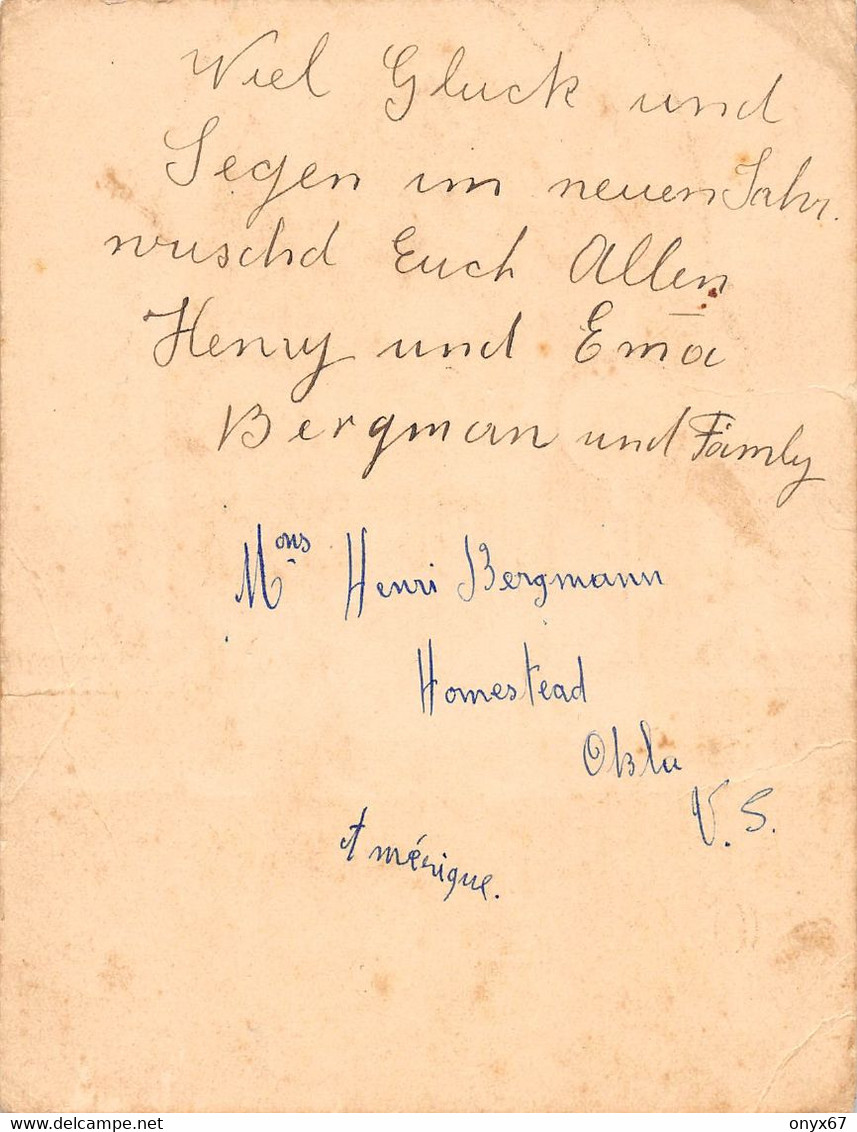 Viel Gluck und
Segen im neuen Jahr.
wuschd Euch Allen
Henry und Em̄a
Bergman und Fämly
Mons Henri Bergmann
Homestead
Okla
U. S.
Amérique.
delcampe.net
onyx67